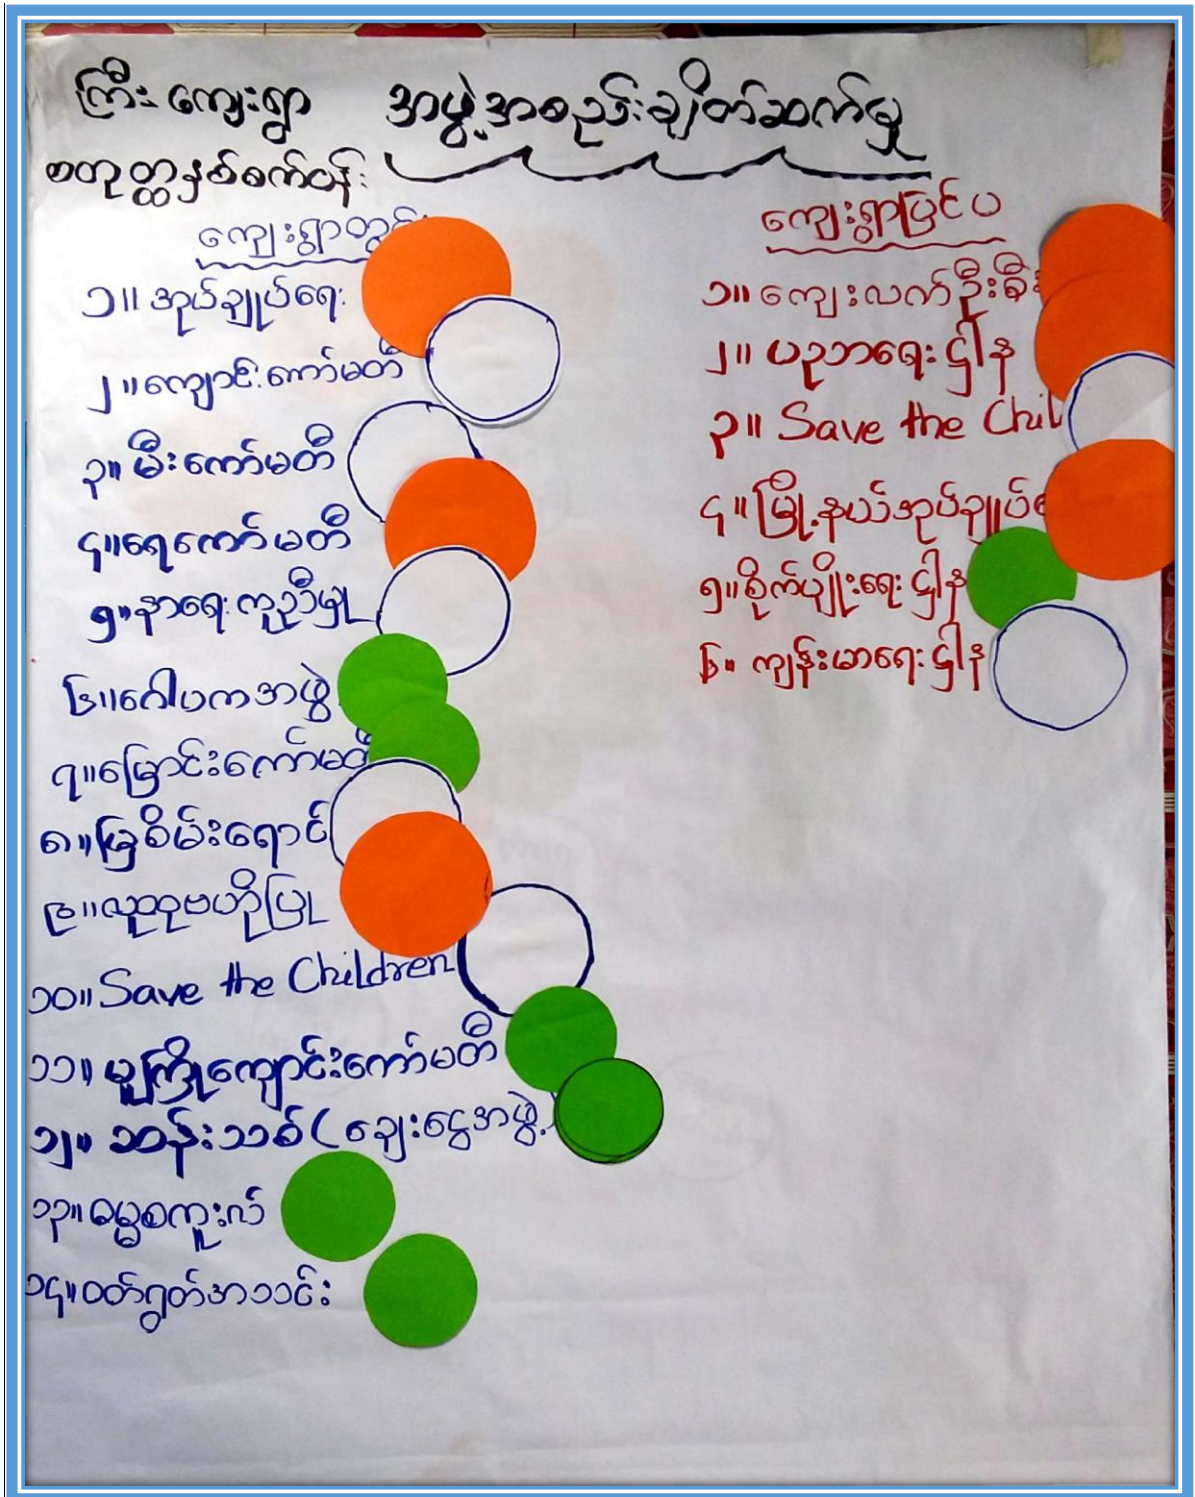 ကြီးကျေးရွာ အဖွဲ့အစည်းချိတ်ဆက်မှု
စတုတ္ထနှစ်စက်ဝန်း
ကျေးရွာတွင်း
၁။ အုပ်ချုပ်ရေး
၂။ ကျောင်းကော်မတီ
၃။ မီးကော်မတီ
၄။ ရေကော်မတီ
၅။ နာရေးကူညီမှု
၆။ ဂေါပကအဖွဲ့
၇။ မြောင်းကော်မတီ
၈။ မြစိမ်းရောင်
၉။ လူထုဗဟိုပြု
၁၀။ Save the Children
၁၁။ မူကြိုကျောင်းကော်မတီ
၁၂။ ဆန်းသစ် (ချေးငွေအဖွဲ့)
၁၃။ ဓမ္မစကူးလ်
၁၄။ ဝတ်ရွတ်အသင်း
ကျေးရွာပြင်ပ
၁။ ကျေးလက်ဦးစီး
၂။ ပညာရေးဌါန
၃။ Save the Chil
၄။ မြို့နယ်အုပ်ချုပ်ရေ
၅။ စိုက်ပျိုးရေးဌါန
၆။ ကျန်းမာရေးဌါန